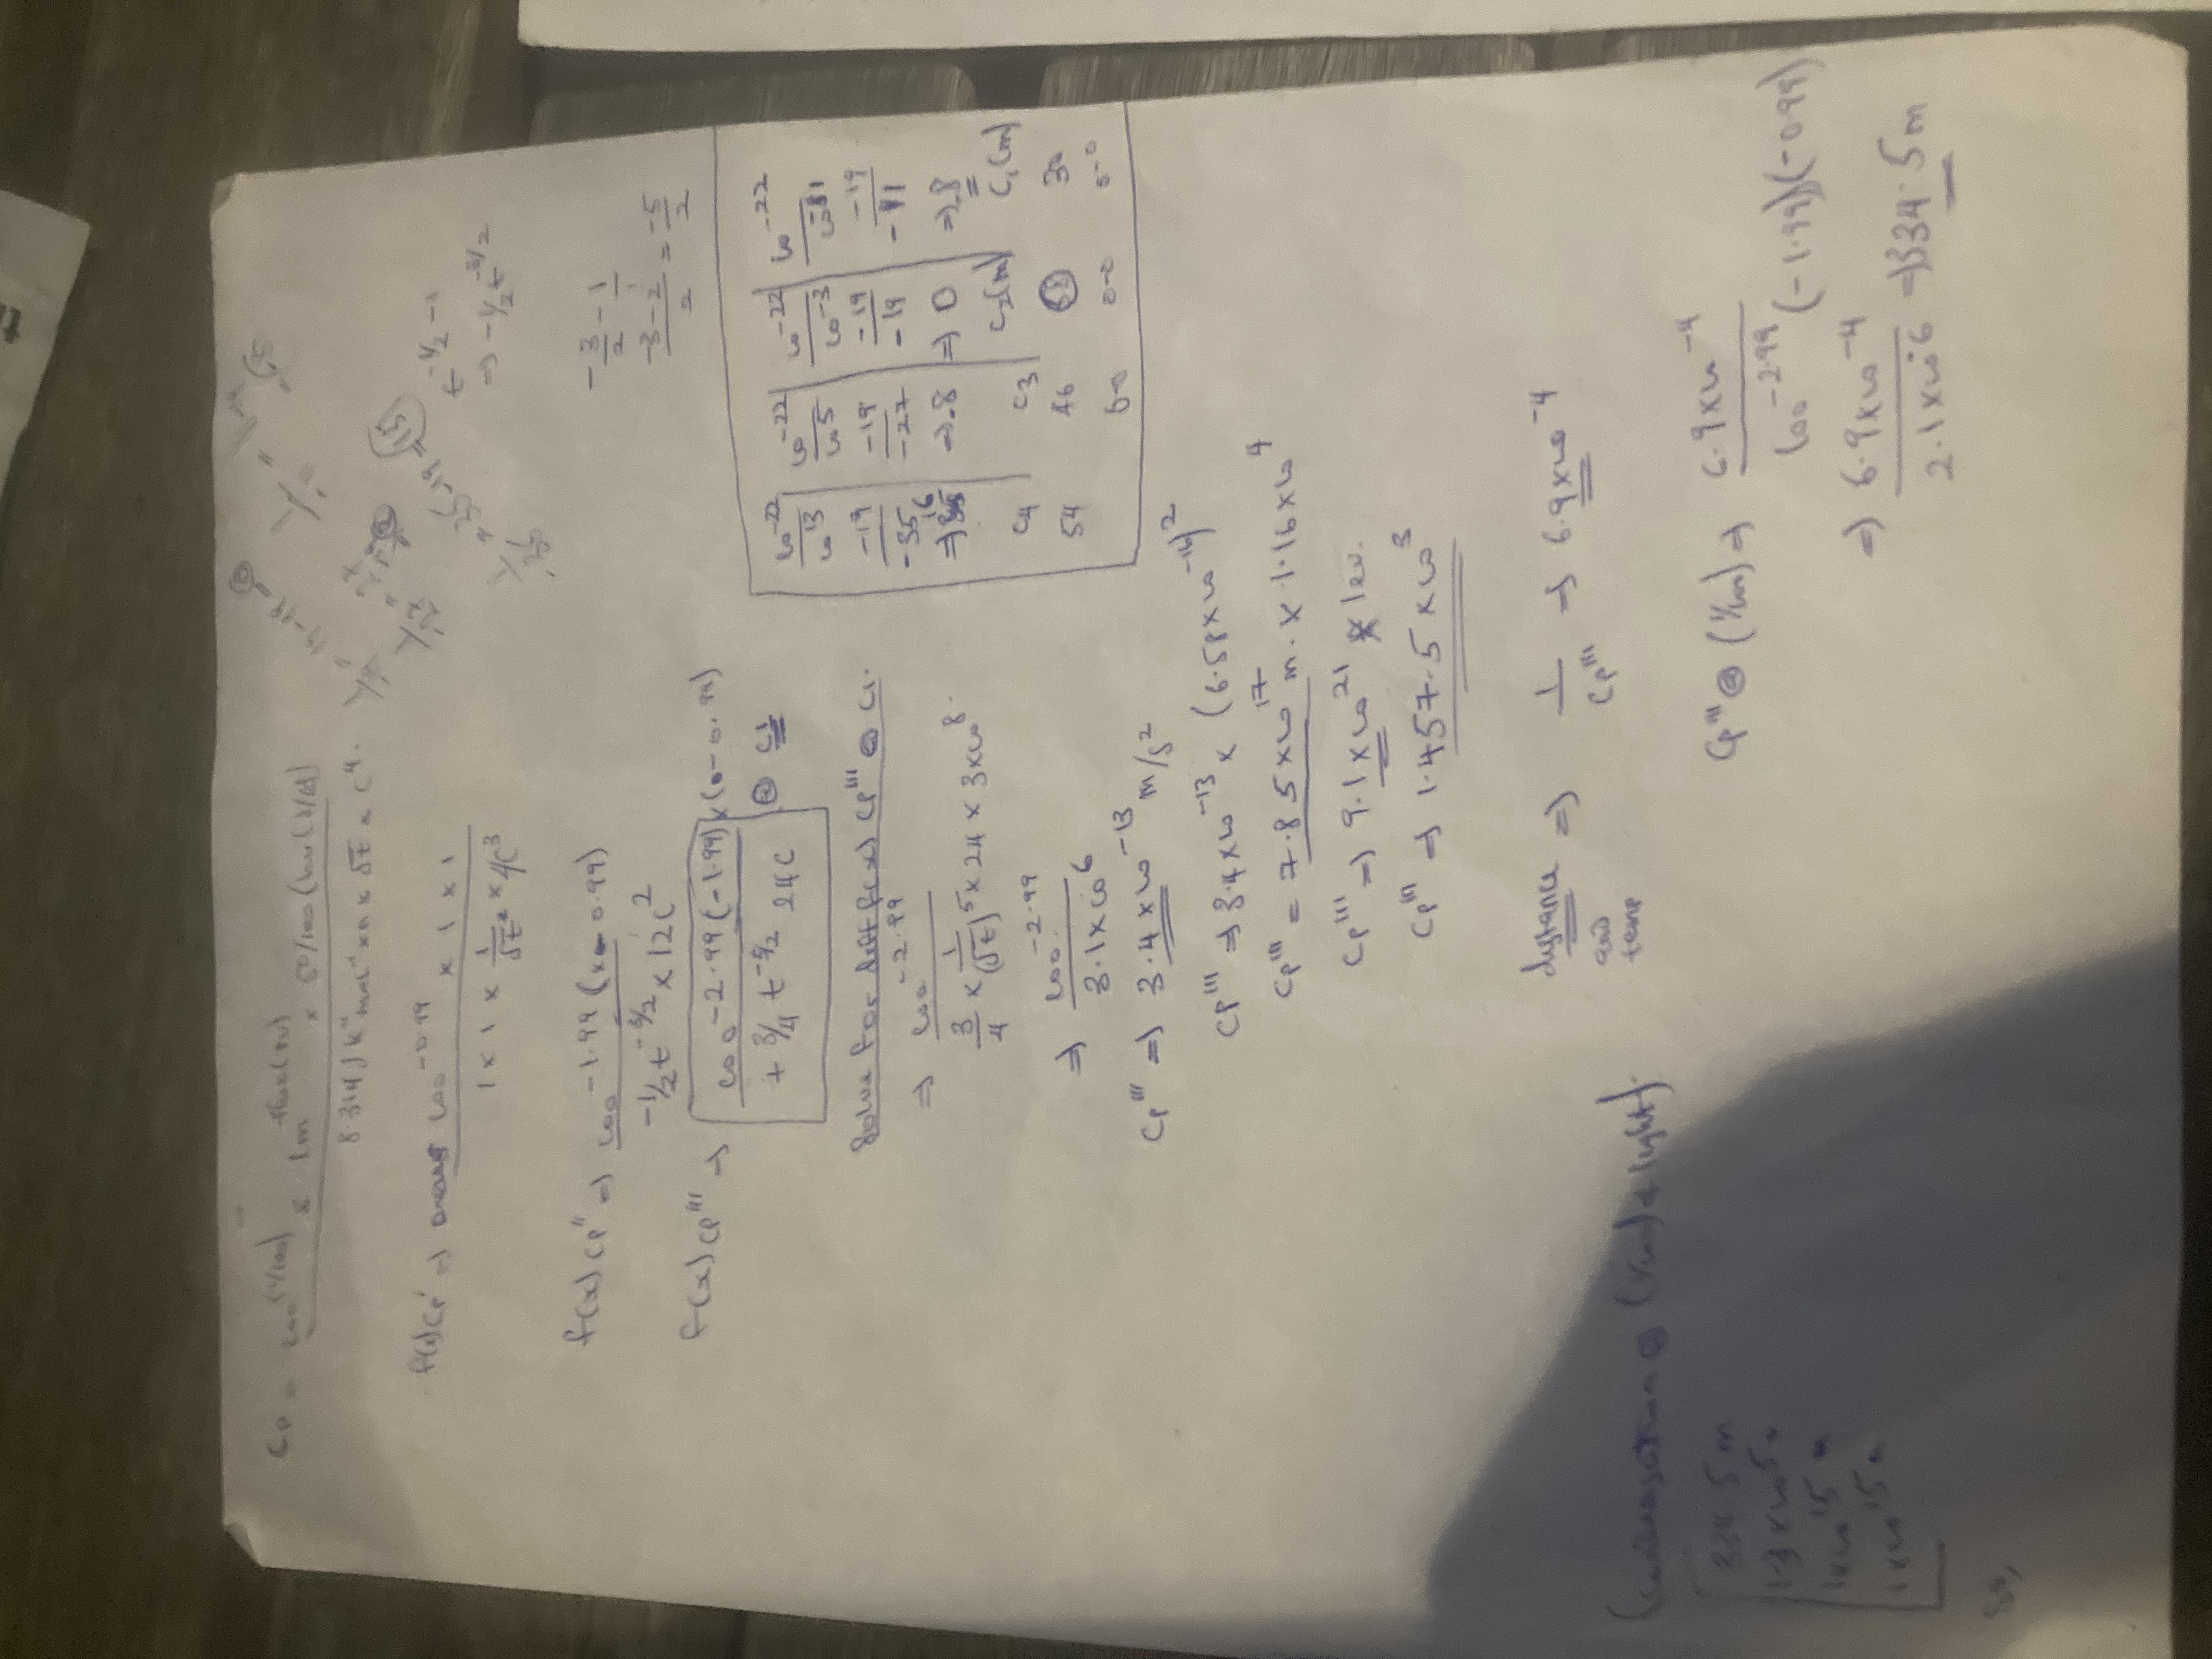 Cp = 100^(1/100) × 1m^flux(pv) × 50/100 (hv(1/λ))
8.314 J K^-1 mol^-1 × n × √t × c^4.
f(x) Cp' => 100^-0.99 × 1 × 1
1 × 1 × 1/√t² × 4c^3
f(x) Cp'' => 100^-1.99 (x-0.99)
-1/2 t^-3/2 × 12c^2
f(x) Cp''' => 100^-2.99 (-1.99) × (0-0.99)
+ 3/4 t^-5/2 24c @ C1
Solve for diff f(x) Cp''' @ C1.
=> 100^-2.99
3/4 × 1/(√t)^5 × 24 × 3×10^8.
=> 100^-2.99
3.1×10^6
Cp''' => 3.4×10^-13 m/s^2
Cp''' => 3.4×10^-13 × (6.58×10^-16)^2
Cp''' = 7.85×10^17 m. × 1.16×10^4
Cp''' => 9.1×10^21 × 1ev.
Cp''' => 1.457.5×10^3
distance => 1/Cp''' => 6.9×10^-4
and
temp
Cp''' @ (1/100) => 6.9×10^-4
100^-2.99 (-1.99)(-0.99)
=> 6.9×10^-4
2.1×10^-6 => 334.5m
1/-19 = 19-19 = 0
1/-27 = 27
-19
1/-35 = 35-19 = 15
1/-11 = 11-19
t^-1/2 -1
=> -1/2 t^-3/2
-3/2 - 1/1
-3-2/2 = -5/2
10^-22 10^-22 10^-22 10^-22
10^13 10^5 10^-3 10^-11
-19 -19 -19 -19
-35 -27 -19 -11
=> 16 => .8 => 0 => .8
C4 C3 C2(m) C1(m)
54 46 38 30
0-0 0-0 0-0
(Condensation @ (1/100) of light).
334.5m
1.3×10^5
1×10^15
1×10^15
So,